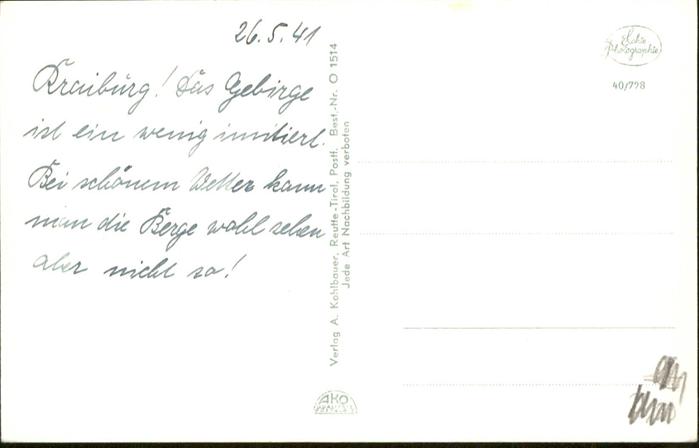 26.5.41
Kraiburg! Das Gebirge
ist ein wenig imitiert.
Bei schönem Wetter kann
man die Berge wohl sehen
aber nicht so!
Verlag A. Kohlbauer, Reutte-Tirol, Postf. Best.-Nr. O 1514
Jede Art Nachbildung verboten
AKO
Echte
Photographie
40/798